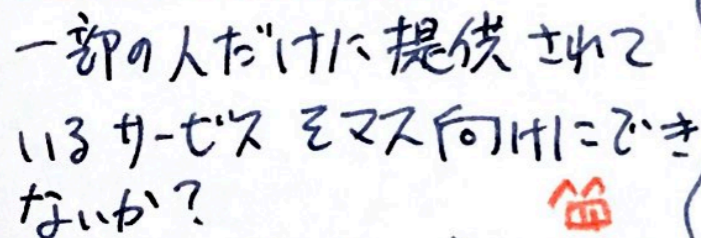 一部の人だけに提供されて
いるサービスをマス向けにでき
ないか?